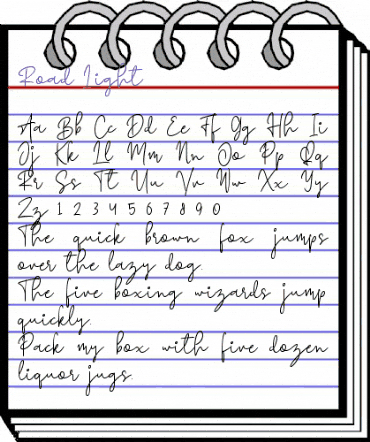 Road Light
Aa Bb Cc Dd Ee Ff Gg Hh Ii
Jj Kk Ll Mm Nn Oo Pp Qq
Rr Ss Tt Uu Vv Ww Xx Yy
Zz 1 2 3 4 5 6 7 8 9 0
The quick brown fox jumps
over the lazy dog.
The five boxing wizards jump
quickly.
Pack my box with five dozen
liquor jugs.